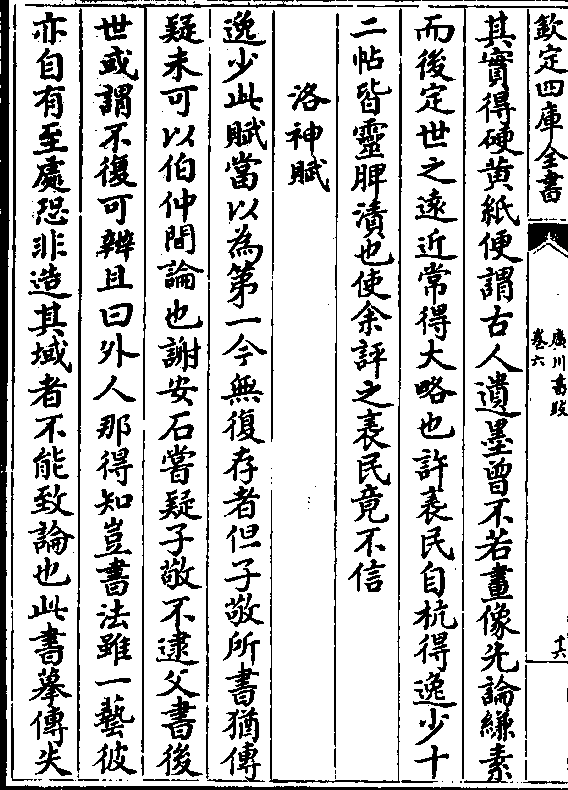 欽定四庫全書
廣川書跋
卷六
十六
其實得硬黄紙便謂古人遺墨曾不若畫像先論縑素
而後定世之逺近常得大略也許衮民自杭得逸少十
二帖皆靈脾漬也使余評之衮民竟不信
洛神賦
逸少此賦當以為第一今無復存者但子敬所書猶傳
疑未可以伯仲間論也謝安石嘗疑子敬不逮父書後
世或謂不復可辨且曰外人那得知豈書法雖一藝彼
亦自有至處恐非造其域者不能致論也此書摹傳失